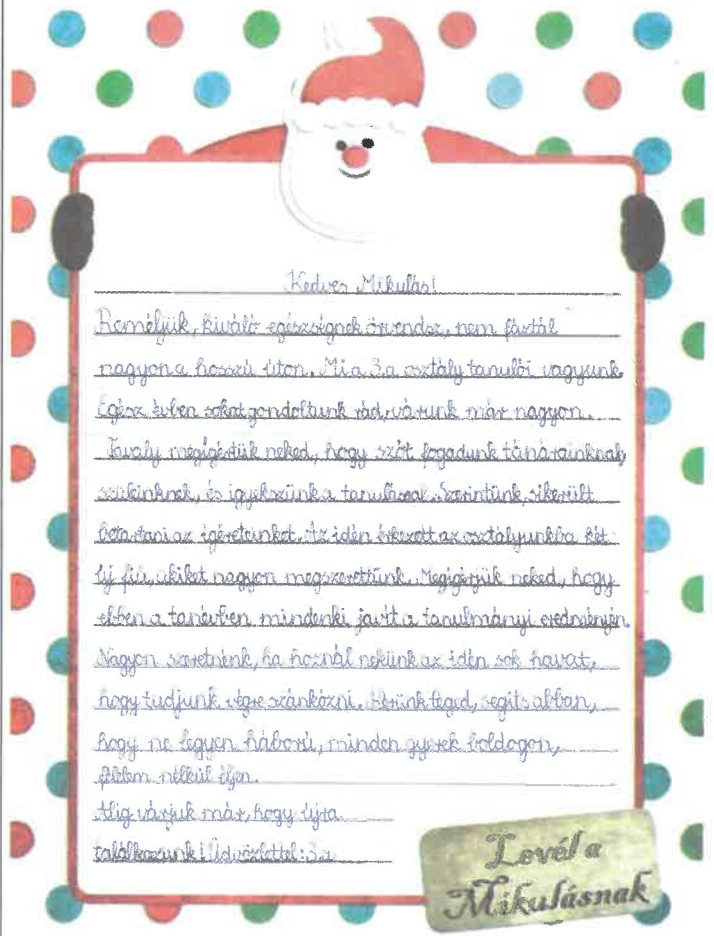 Kedves Mikulás!
Reméljük, kiváló egészségnek örvendsz, nem fáztál
nagyon a hosszú úton. Mi a 3.a osztály tanulói vagyunk.
Egész évben sokat gondoltunk rád, várunk már nagyon.
Tavaly megígértük neked, hogy szót fogadunk tanárainknak,
szüleinknek, és igyekszünk a tanulással. Szerintünk, sikerült
betartani az ígéreteinket. Az idén érkezett az osztályunkba két
új fiú, akiket nagyon megszerettünk. Megígérjük neked, hogy
ebben a tanévben mindenki javít a tanulmányi eredményén.
Nagyon szeretnénk, ha hoznál nekünk az idén sok havat,
hogy tudjunk végre szánkózni. Kérünk téged, segíts abban,
hogy ne legyen háború, minden gyerek boldogan,
félelem nélkül éljen.
Alig várjuk már, hogy újra
találkozzunk! Üdvözlettel: 3.a
Levél a
Mikulásnak